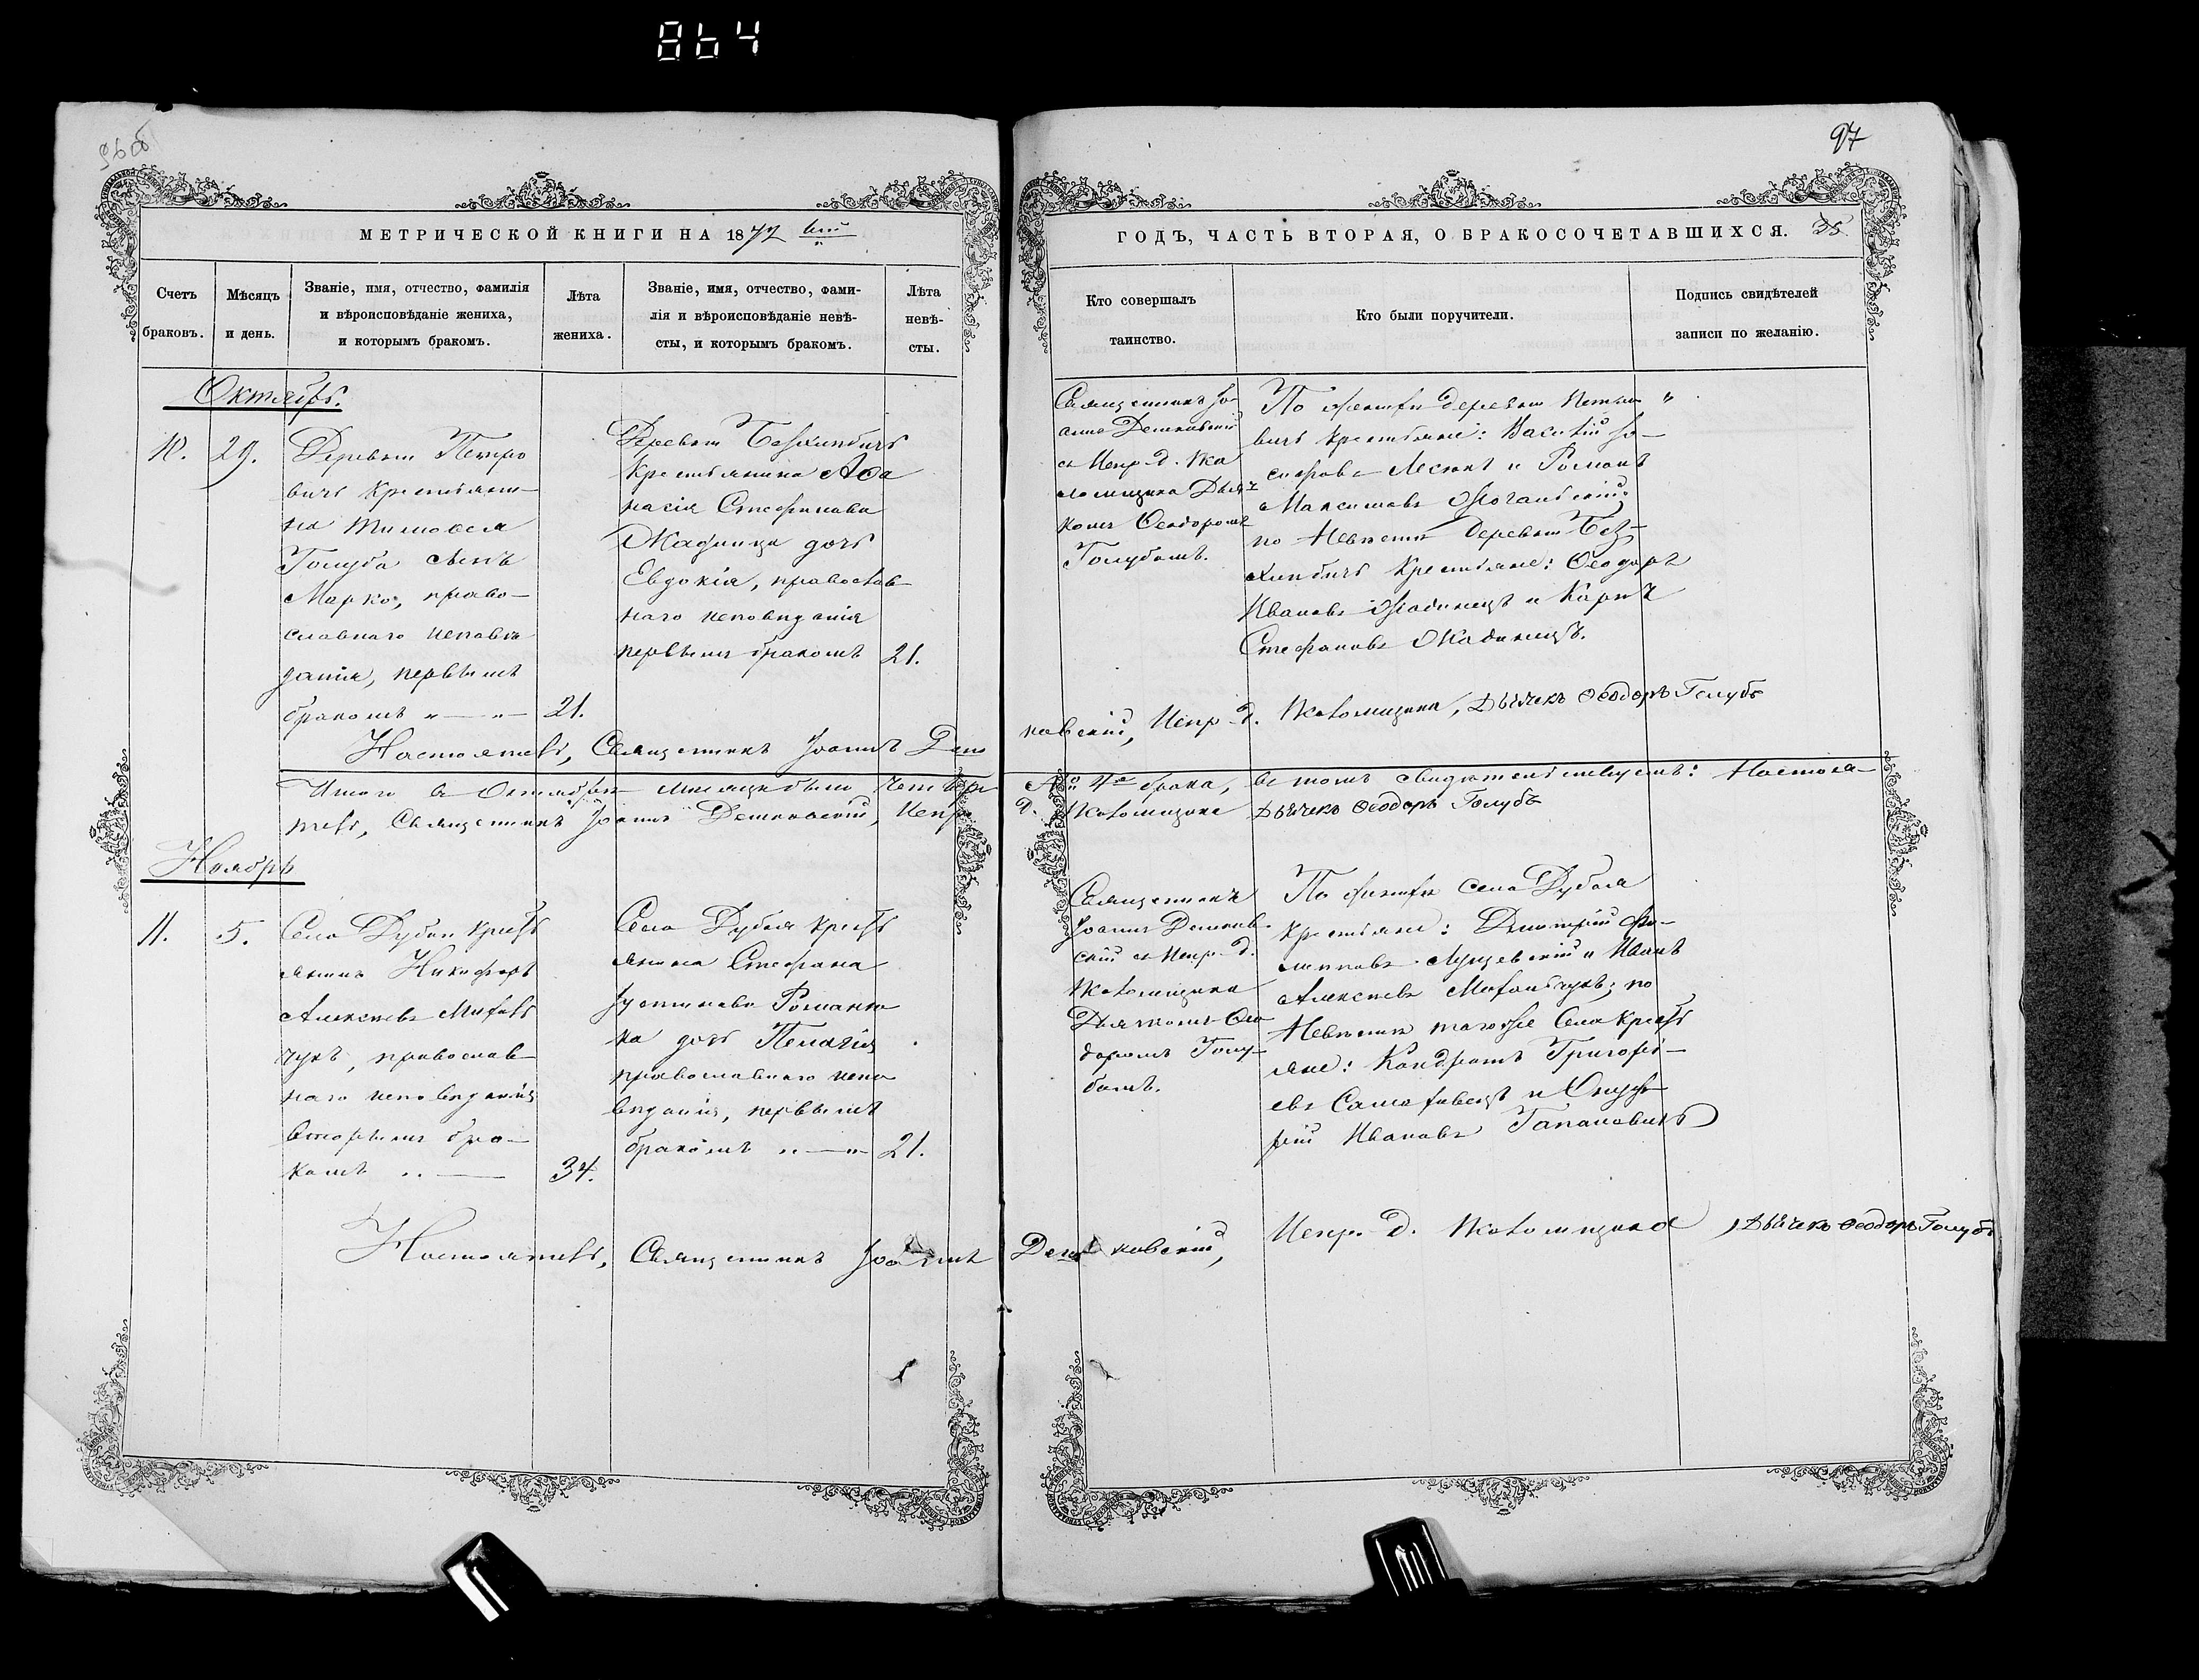 864
96об
97
МЕТРИЧЕСКОЙ КНИГИ НА 1872 вый
ГОДЪ, ЧАСТЬ ВТОРАЯ, О БРАКОСОЧЕТАВШИХСЯ. 35
Счетъ браковъ.
Мѣсяцъ и день.
Званіе, имя, отчество, фамилія
и вѣроисповѣданіе жениха,
и которымъ бракомъ.
Лѣта
жениха.
Званіе, имя, отчество, фами-
лія и вѣроисповѣданіе невѣ-
сты, и которымъ бракомъ.
Лѣта
невѣ-
сты.
Кто совершалъ
таинство.
Кто были поручители.
Подпись свидѣтелей
записи по желанію.
Октябрь.
10. 29.
Деревни Петро
вичъ Крестьяни-
на Тимоѳея
Голуба сынъ
Марко, право-
славнаго исповѣ
данія, первымъ
бракомъ " — " 21.
Деревни Безхлѣбичъ
Крестьянина Аѳа
насія Стефанова
Жадинца дочь
Евдокія, православ-
наго исповѣданія
первымъ бракомъ 21.
Священникъ Іо-
аннъ Демковскій
съ Испр. д. Пса
ломщика Дьяч
комъ Ѳеодоромъ
Голубомъ.
По женихѣ деревни Петро "
вичъ Крестьяне: Василій Іо-
сифовъ Лесюкъ и Романъ
Максимовъ
по Невѣстѣ деревни Без-
хлѣбичъ Крестьяне: Ѳеодоръ
Ивановъ Жадинецъ и Карпъ
Стефановъ Жадинецъ.
Настоятель, Священникъ Іоаннъ Дем
ковскій, Испр. д. Псаломщика, Дьячекъ Ѳеодоръ Голубъ
Итого въ Октябрѣ мѣсяцѣ было четыре
№ 4е брака, въ томъ свидѣтельствуемъ: Настоя-
тель, Священникъ Іоаннъ Демковскій, Испр.
д. Псаломщика Дьячекъ Ѳеодоръ Голубъ
Ноябрь
11. 5.
Села Дубои Кресть
янинъ Никифоръ
Алексѣевъ Михаль
чукъ, православ-
наго исповѣданія
вторымъ бра-
комъ " — 34.
Села Дубоя Кресть
янина Стефана
Іустинова Романю
ка дочь Пелагія
православнаго испо
вѣданія, первымъ
бракомъ " — " 21.
Священникъ
Іоаннъ Демков-
скій съ Испр. д.
Псаломщика
Дьячкомъ Ѳео
доромъ Голу-
бомъ.
По женихѣ села Дубоя
Крестьяне: Димитрій Фи-
липповъ Луцевскій и Иванъ
Алексѣевъ Михальчукъ; по
Невѣстѣ того же Села Кресть
яне: Кондратъ Григорь-
евъ и Онуф-
рій Ивановъ Гапановичъ
Настоятель, Священникъ Іоаннъ Демковскій,
Испр. д. Псаломщика, Дьячекъ Ѳеодоръ Голубъ